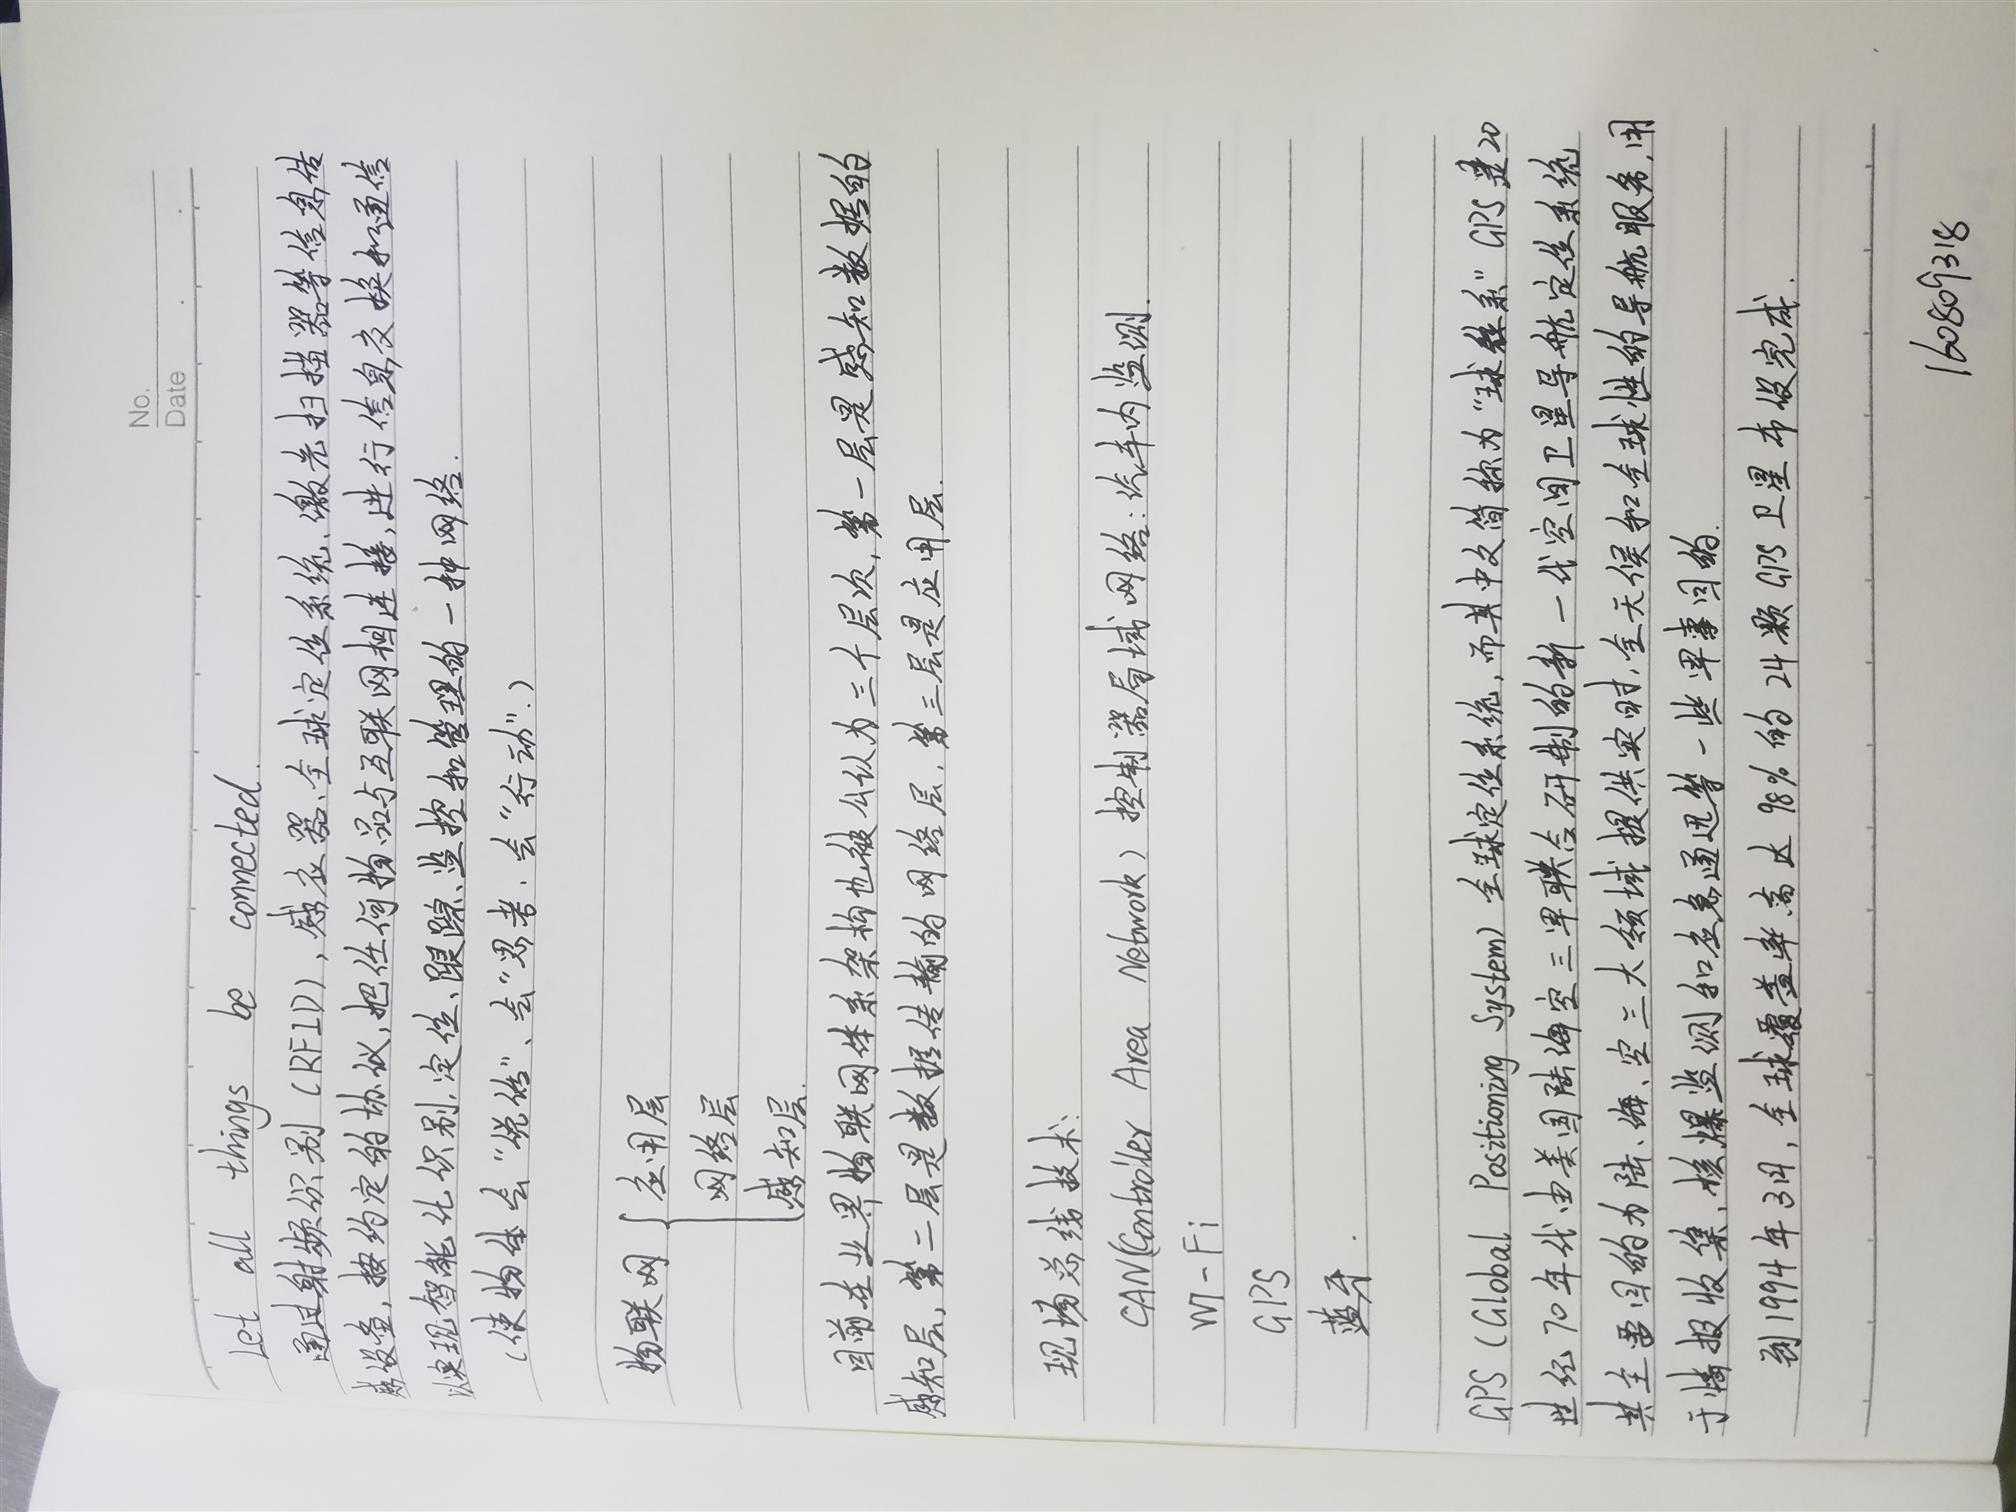 No.
Date
Let all things be connected.
通过射频识别(RFID),感应器、全球定位系统、激光扫描器等信息传
感设备,按约定的协议,把任何物品与互联网相连接,进行信息交换和通信
以实现智能化识别、定位、跟踪、监控和管理的一种网络.
(使物体会“说话”、会“思考”、会“行动”.)
物联网{应用层
网络层
感知层.
目前在业界物联网体系架构也被公认为三个层次,第一层是感知数据的
感知层,第二层是数据传输的网络层,第三层是应用层.
现场总线技术:
CAN(Controller Area Network)控制器局域网络:汽车内监测.
Wi-Fi
GPS
蓝牙.
GPS(Global Positioning System)全球定位系统,而其中文简称为“球系”GPS是20
世纪70年代由美国陆海空三军联合研制的新一代空间卫星导航定位系统
其主要目的为陆、海、空三大领域提供实时、全天候和全球性的导航服务,用
于情报收集,核爆监测和应急通讯等一些军事目的.
到1994年3月,全球覆盖率高达98%的24颗GPS卫星布设完成.
160809318